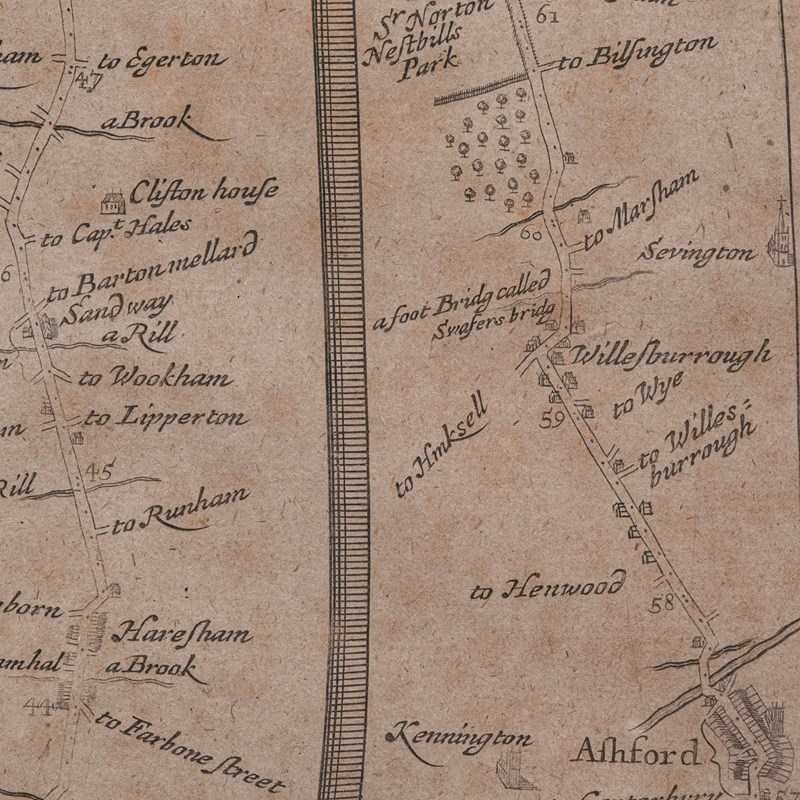 to Egerton
47
a Brook
Clifton houſe
to Capt Hales
6
to Barton mellard
Sandway
a Rill
to Wookham
to Lipperton
45
Rill
to Runham
born
Hareſham
a Brook
44
to Farbone ſtreet
Sr Norton
Neſtbills
Park
61
to Bilſington
60
to Marſham
Sevington
a foot Bridg called
Swafers bridg
Willeſburrough
to Wye
59
to Hmksell
to Willes=
burrough
to Henwood
58
Kennington
Aſhford
Canterbury
57